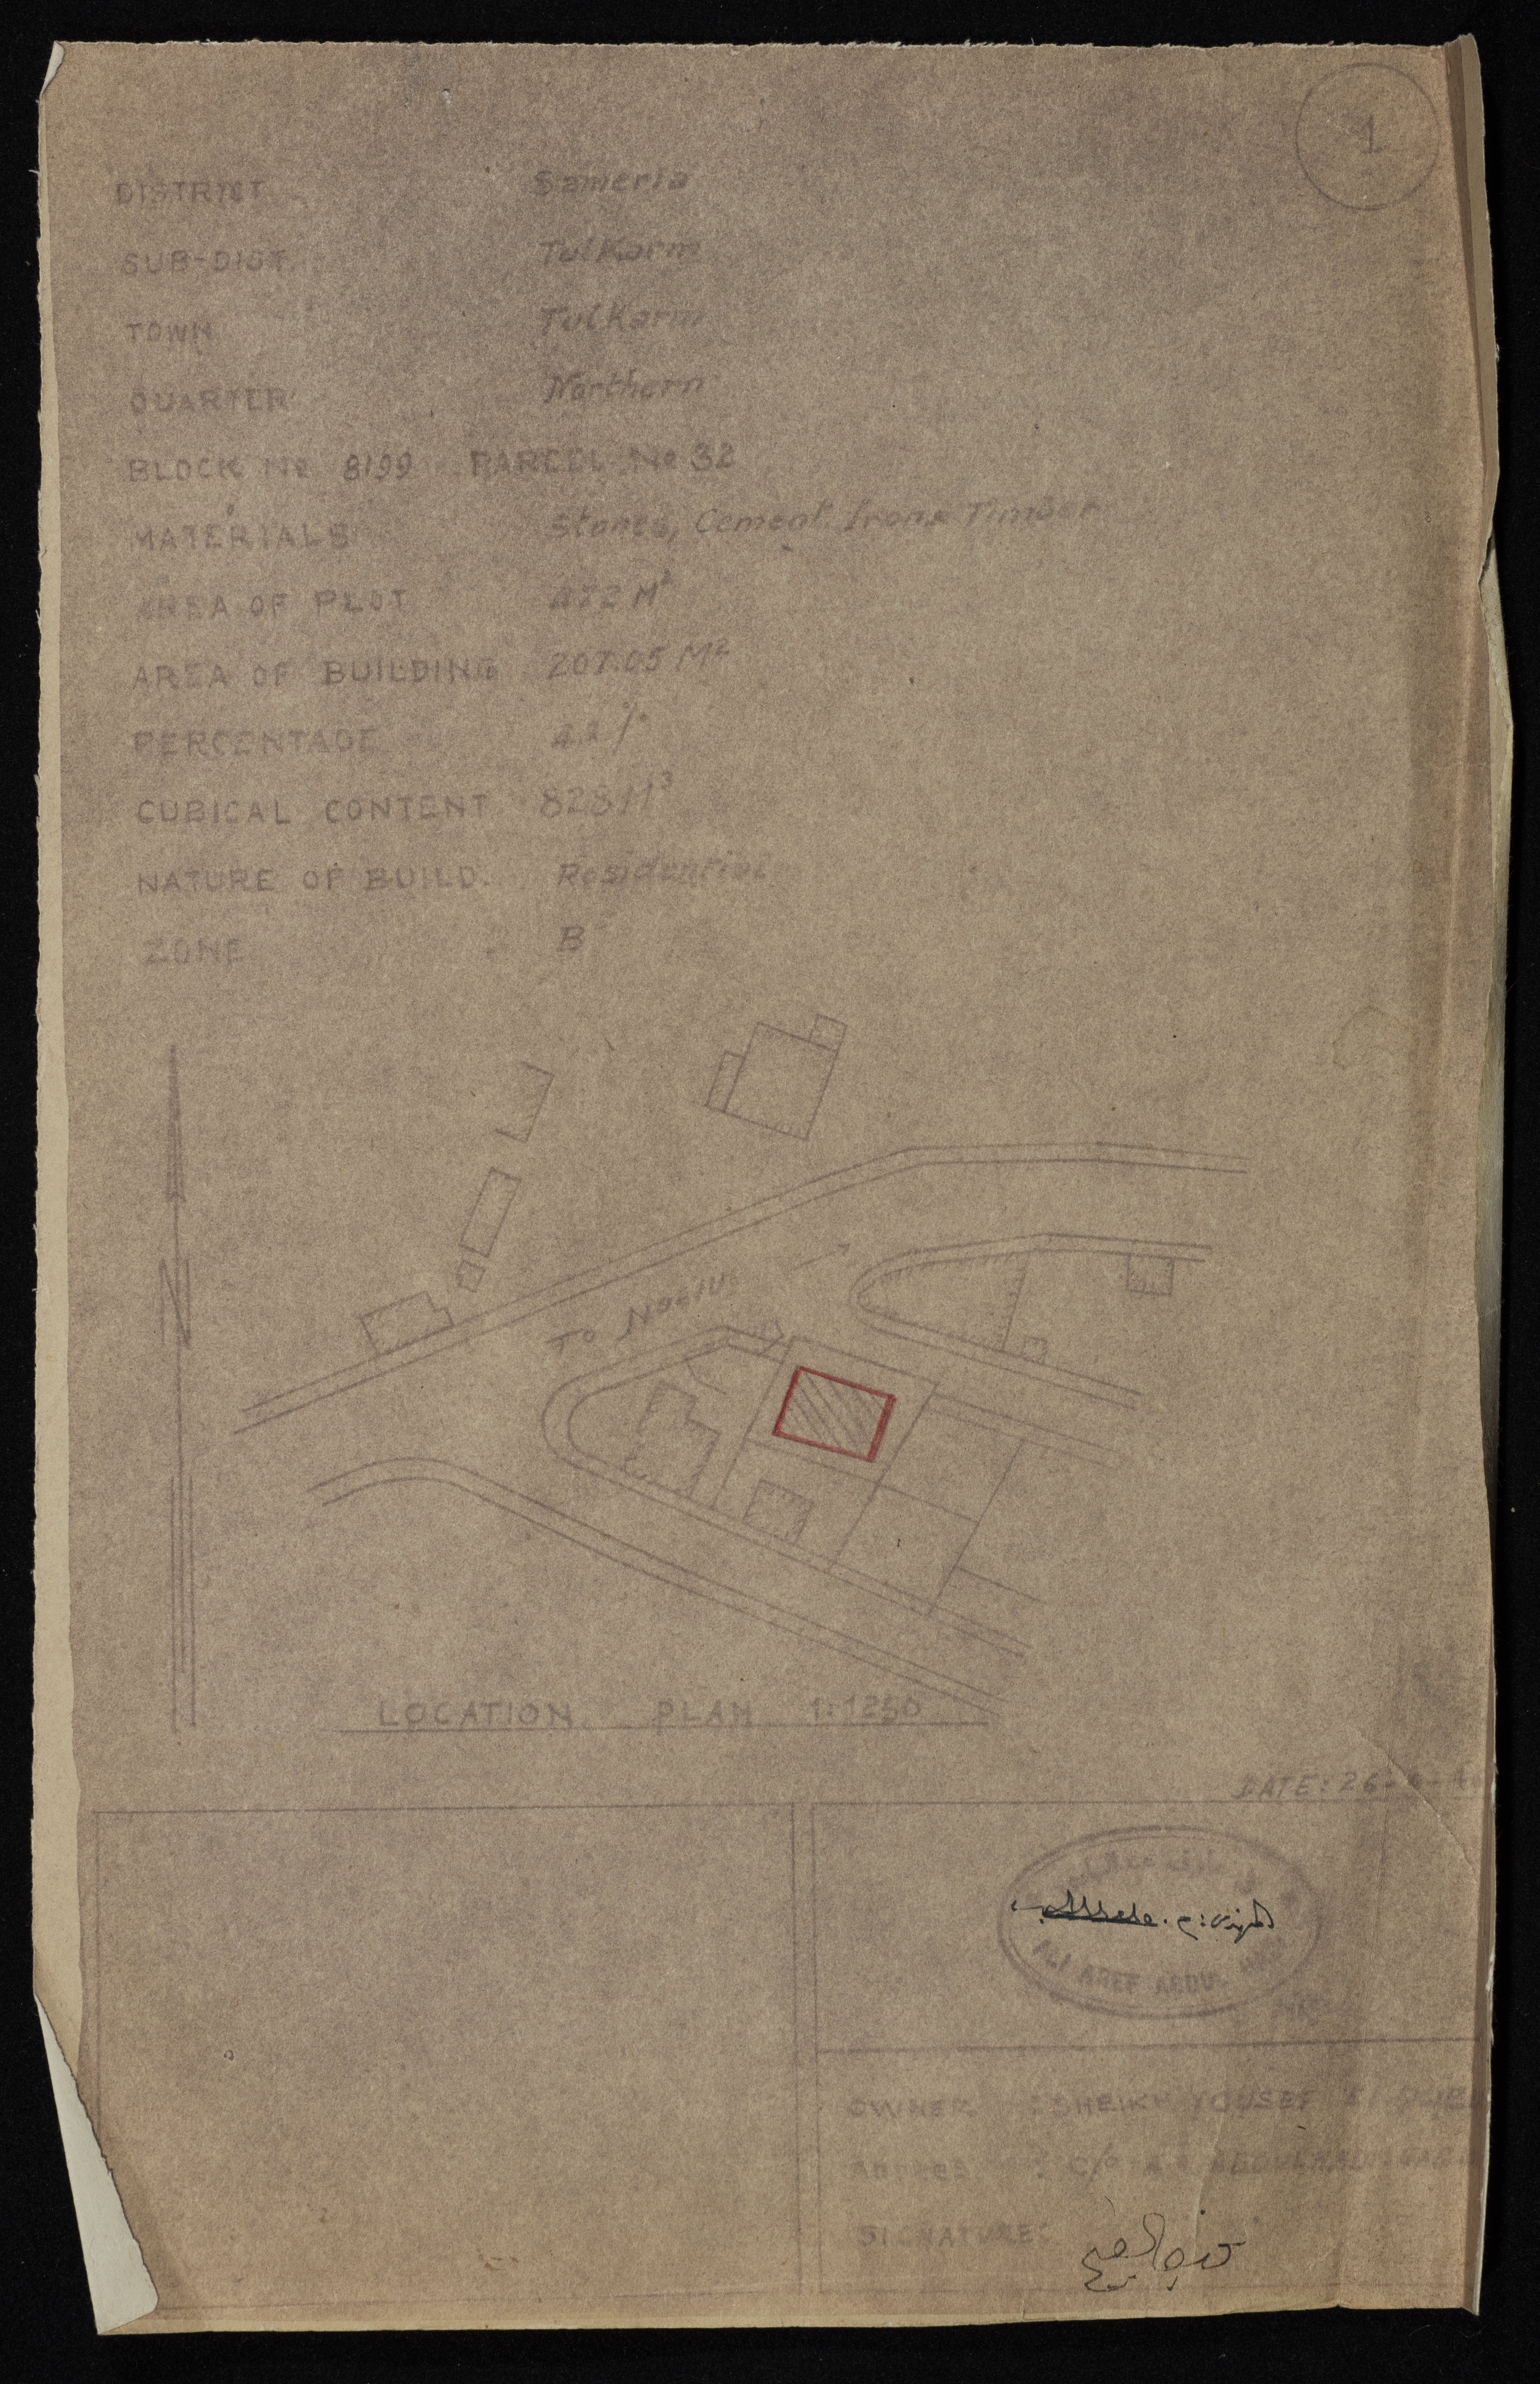 1
DISTRICT Sameria
SUB-DIST. TulKarm
TOWN TulKarm
QUARTER Northern
BLOCK No 8199 PARCEL No 32
MATERIALS Stones, Cement Iron & Timber
AREA OF PLOT 472 M²
AREA OF BUILDING 207.05 M²
PERCENTAGE %
CUBICAL CONTENT 828 M³
NATURE OF BUILD. Residential
ZONE B
N
To Nablus
LOCATION PLAN 1:1250
DATE: 26-
المهندس:
ALI AREF ABDUL
OWNER : SHEIKH YOUSEF
ADDRES : C/O
SIGNATURE: